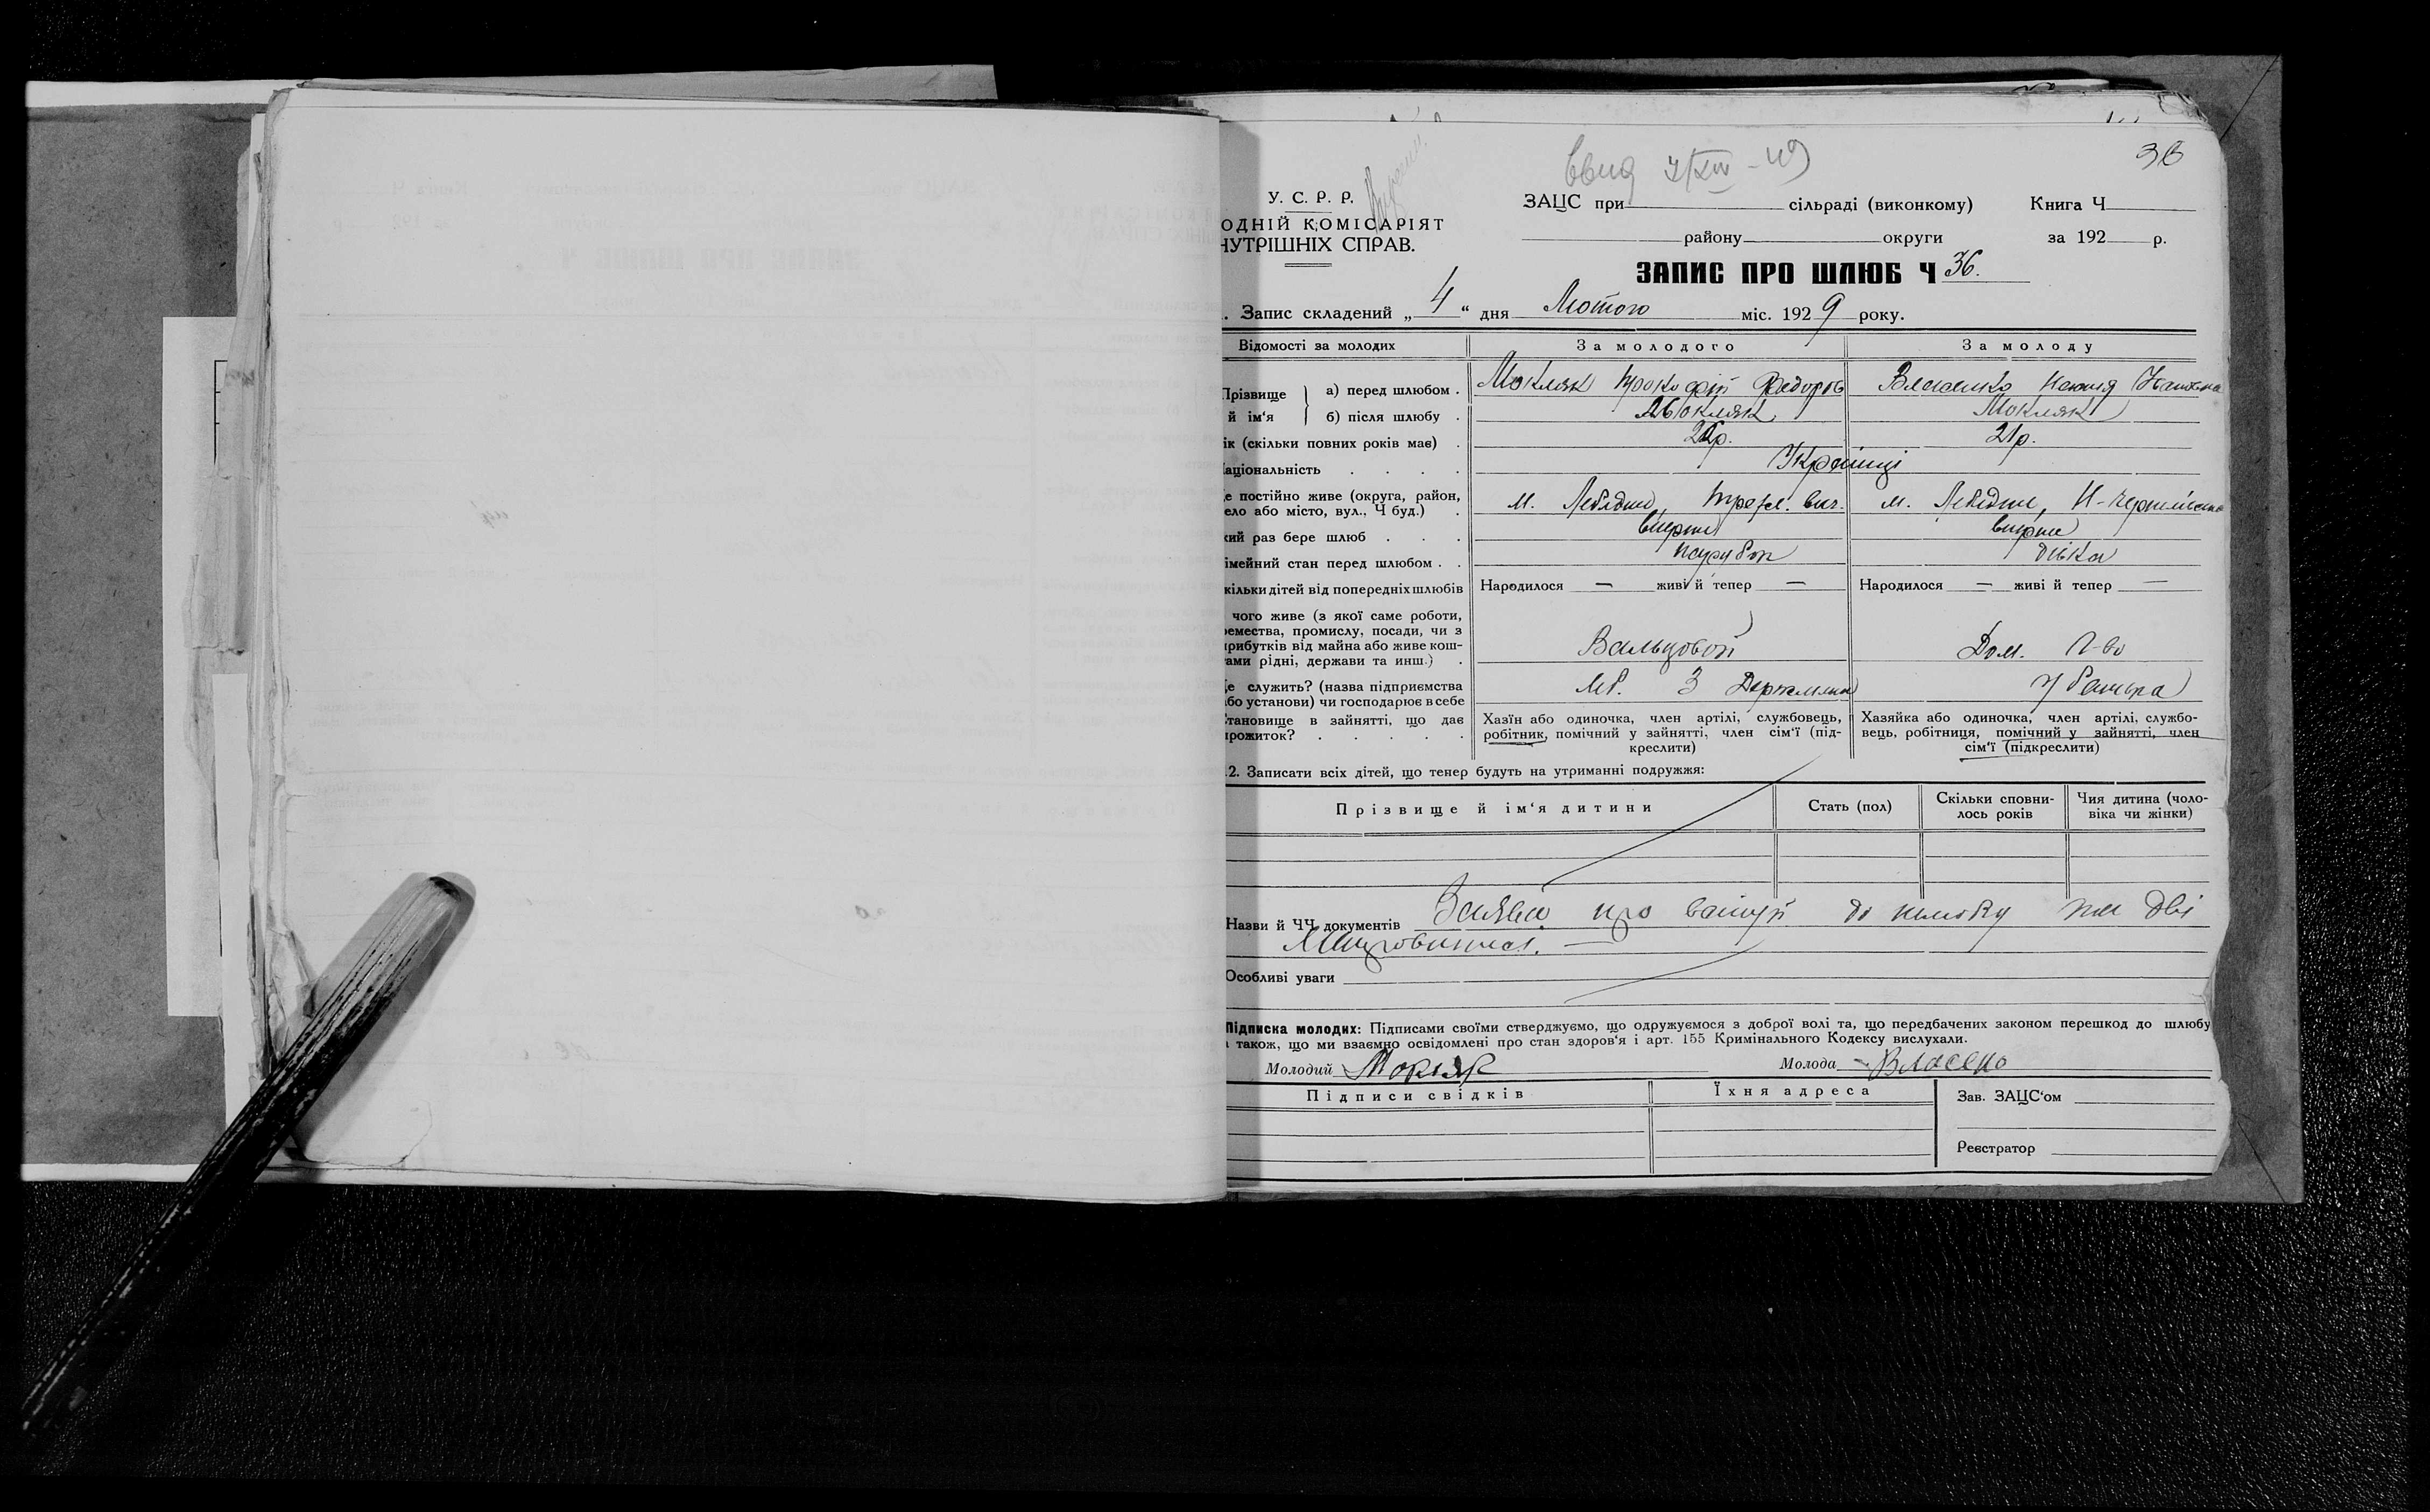 36
У. С. Р. Р.
ОДНІЙ КОМІСАРІЯТ
НУТРІШНІХ СПРАВ.
ЗАЦС при сільраді (виконкому) Книга Ч
району округи за 192 р.
ЗАПИС ПРО ШЛЮБ Ч 36.
. Запис складений „ 4 “ дня Лютого міс. 192 9 року.
Відомості за молодих За молодого За молоду
Прізвище й ім'я а) перед шлюбом . Мокляк Прокофій Федоров Власенко Ївановна
б) після шлюбу . Мокляк Мокляк
ік (скільки повних років має) . 21р.
аціональність . . . . Українці
е постійно живе (округа, район, м. Лебедин, м. Лебедин,
ело або місто, вул., Ч буд.) .
кий раз бере шлюб . . . вперше вперше
імейний стан перед шлюбом . . парубок дівка
кільки дітей від попередніх шлюбів Народилося — живі й тепер — Народилося — живі й тепер —
чого живе (з якої саме роботи,
емества, промислу, посади, чи з
рибутків від майна або живе кош-
тами рідні, держави та инш.) . Вальцовой Дом. г-во
е служить? (назва підприємства 3 у батька
бо установи) чи господарює в себе
тановище в зайнятті, що дає Хазїн або одиночка, член артілі, службовець, Хазяйка або одиночка, член артілі, службо-
рожиток? . . . . . робітник, помічний у зайнятті, член сім'ї (під- вець, робітниця, помічний у зайнятті, член
креслити) сім'ї (підкреслити)
2. Записати всіх дітей, що тепер будуть на утриманні подружжя:
Прізвище й ім'я дитини Стать (пол) Скільки сповни- Чия дитина (чоло-
лось років віка чи жінки)
Назви й ЧЧ документів Заява про вступ до шлюбу дві
Особливі уваги
Підписка молодих: Підписами своїми стверджуємо, що одружуємося з доброї волі та, що передбачених законом перешкод до шлюбу
також, що ми взаємно освідомлені про стан здоров'я і арт. 155 Кримінального Кодексу вислухали.
Молодий Мокляк Молода Власено
Підписи свідків Їхня адреса Зав. ЗАЦС'ом
Реєстратор